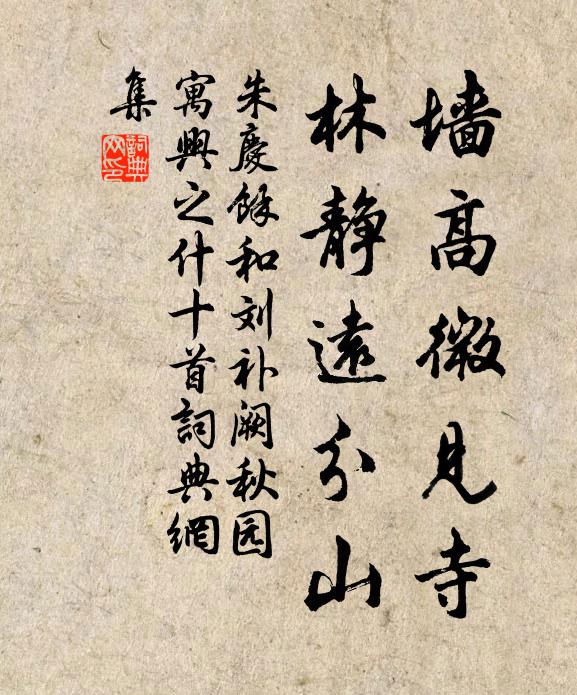 墙高微见寺
林静遠分山
朱慶馀和刘补阙秋园
寓興之什十首詞典網
集
詞典
网印